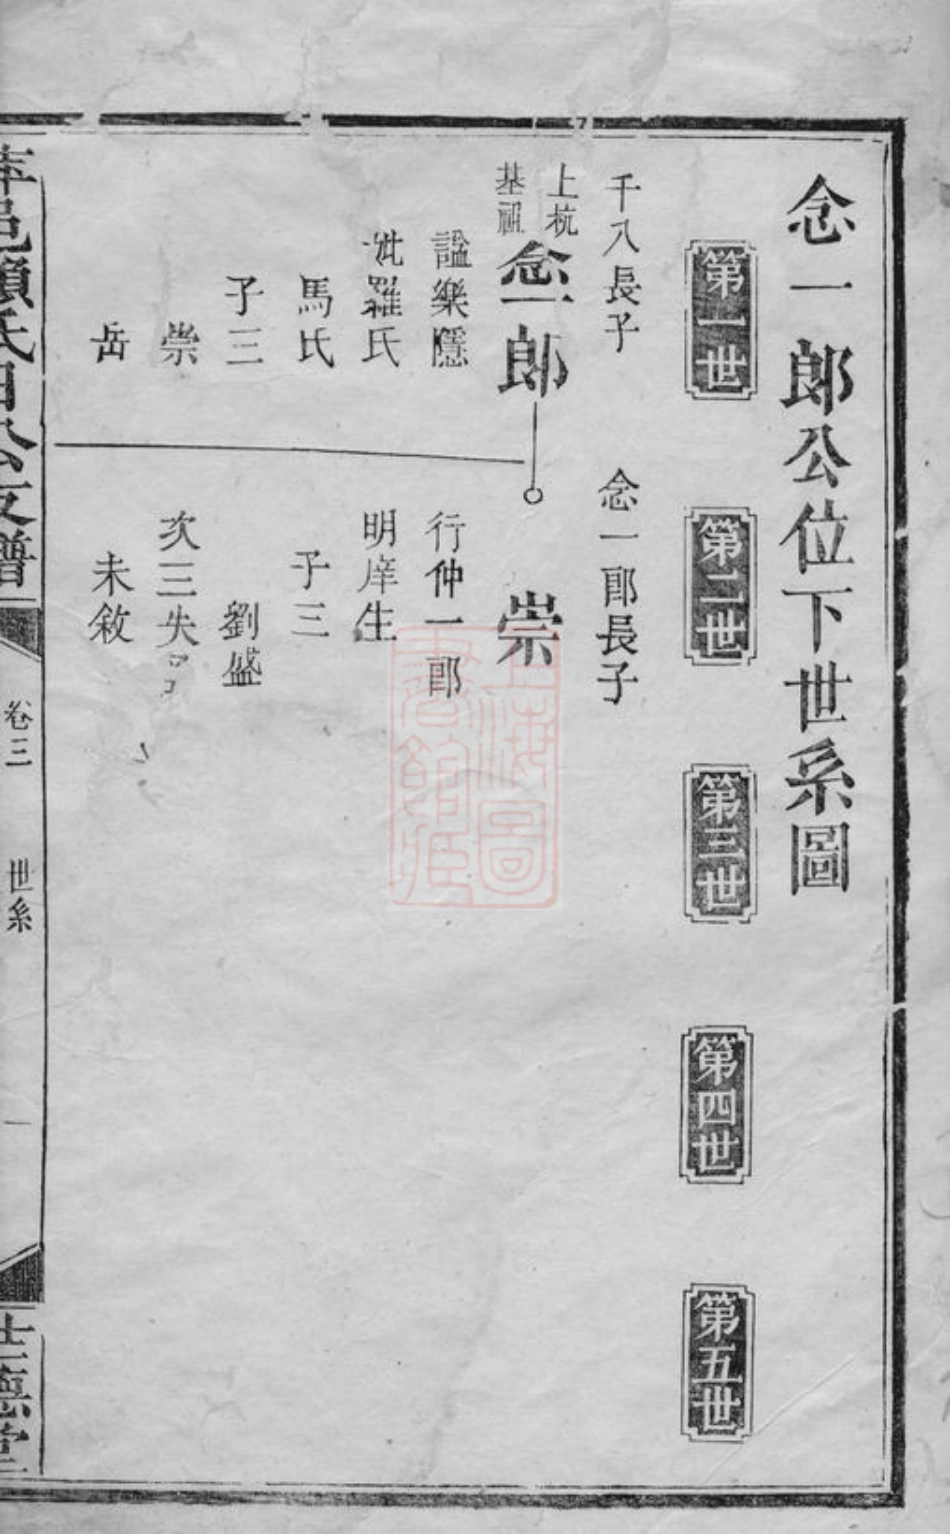 念一郎公位下世系圖
第一世
第二世
第三世
第四世
第五世
千八長子
上杭
基祖
念一郎
諡樂隱
妣羅氏
馬氏
子三
崇
岳
念一郎長子
崇
行仲一郎
明庠生
子三
劉盛
次三失
未敘
賴氏
公支譜
卷三
世系
一
德堂
上海圖
書館藏